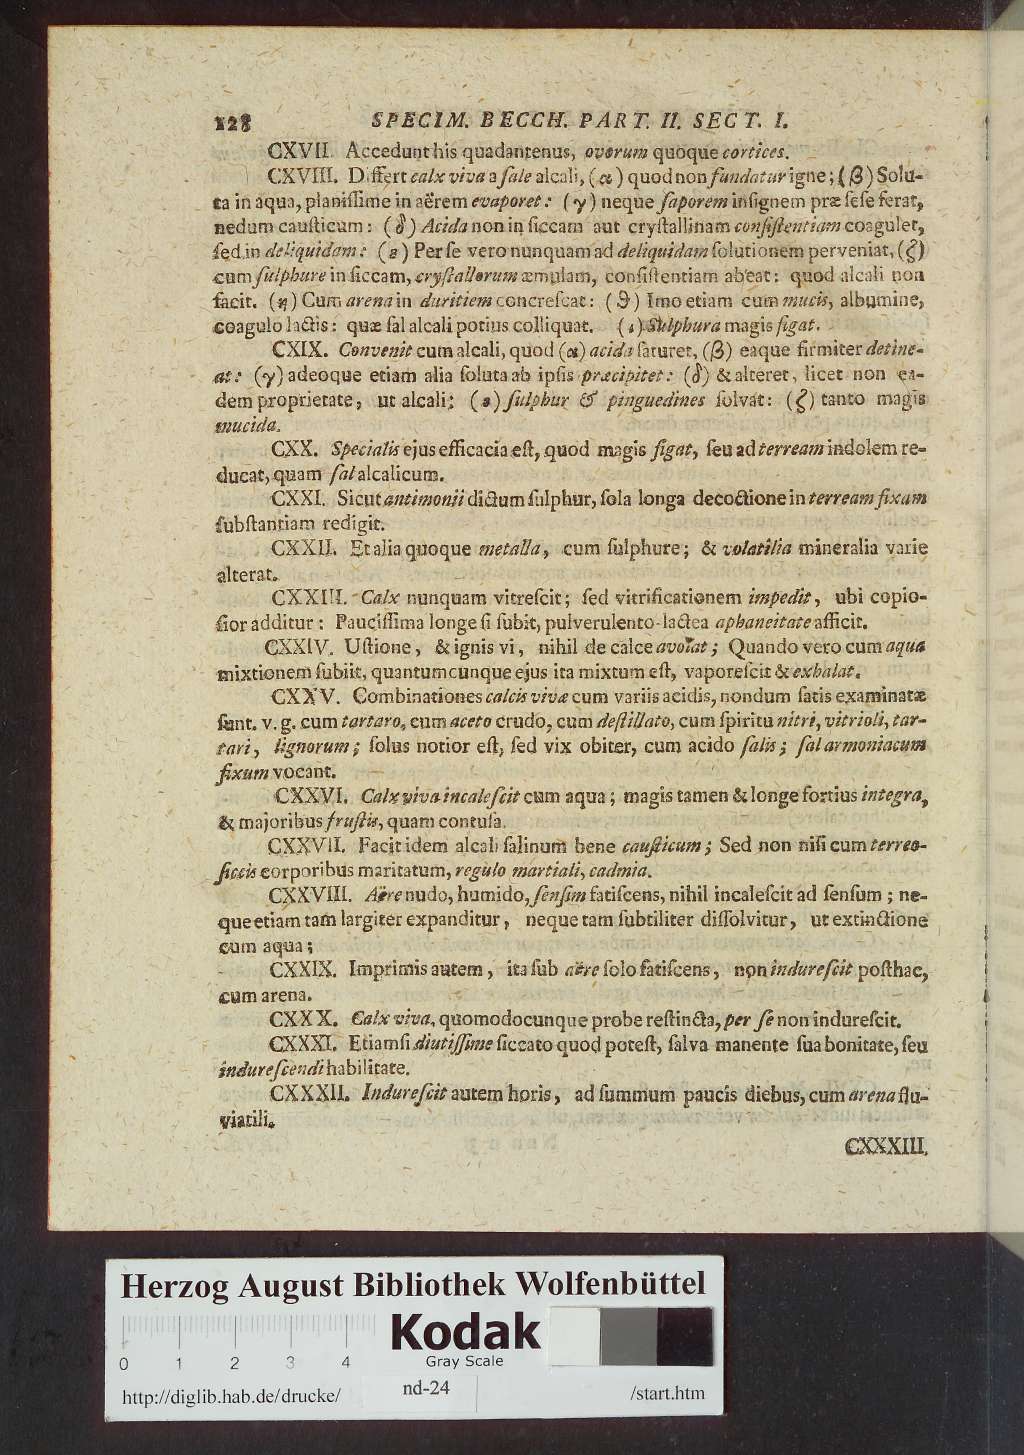 128 SPECIM. BECCH. PART. II. SECT. I.
CXVII. Accedunt his quadantenus, ovorum quoque cortices.
CXVIII. Differt calx viva a ſale alcali, (α) quod non fundatur igne; (β) Solu-
ta in aqua, planiſſime in aërem evaporet: (γ) neque ſaporem inſignem præ ſeſe ferat,
nedum cauſticum: (δ) Acida non in ſiccam aut cryſtallinam conſiſtentiam coagulet,
ſed in deliquidam: (ε) Per ſe vero nunquam ad deliquidam ſolutionem perveniat, (ζ)
cum ſulphure in ſiccam, cryſtallorum æmulam, conſiſtentiam abeat: quod alcali non
facit. (η) Cum arena in duritiem concreſcat: (ϑ) Imo etiam cum mucis, albumine,
coagulo lactis: quæ ſal alcali potius colliquat. (ι) Sulphura magis figat.
CXIX. Convenit cum alcali, quod (α) acida ſaturet, (β) eaque firmiter detine-
at: (γ) adeoque etiam alia ſoluta ab ipſis præcipitet: (δ) & alteret, licet non ea-
dem proprietate, ut alcali; (ε) ſulphur & pinguedines ſolvat: (ζ) tanto magis
mucida.
CXX. Specialis ejus efficacia eſt, quod magis figat, ſeu ad terream indolem re-
ducat, quam ſal alcalicum.
CXXI. Sicut antimonii dictum ſulphur, ſola longa decoctione in terream fixam
ſubſtantiam redigit.
CXXII. Et alia quoque metalla, cum ſulphure; & volatilia mineralia varie
alterat.
CXXIII. Calx nunquam vitreſcit; ſed vitrificationem impedit, ubi copio-
ſior additur: Pauciſſima longe ſi ſubit, pulverulento-lactea aphaneitate afficit.
CXXIV. Uſtione, & ignis vi, nihil de calce avolat; Quando vero cum aqua
mixtionem ſubiit, quantumcunque ejus ita mixtum eſt, vaporeſcit & exhalat.
CXXV. Combinationes calcis vivæ cum variis acidis, nondum ſatis examinatæ
ſunt. v. g. cum tartaro, cum aceto crudo, cum deſtillato, cum ſpiritu nitri, vitrioli, tar-
tari, lignorum; ſolus notior eſt, ſed vix obiter, cum acido ſalis; ſal armoniacum
fixum vocant.
CXXVI. Calx viva incaleſcit cum aqua; magis tamen & longe fortius integra,
& majoribus fruſtis, quam contuſa.
CXXVII. Facit idem alcali ſalinum bene cauſticum; Sed non niſi cum terreo-
ſiccis corporibus maritatum, regulo martiali, cadmia.
CXXVIII. Aëre nudo, humido, ſenſim fatiſcens, nihil incaleſcit ad ſenſum; ne-
que etiam tam largiter expanditur, neque tam ſubtiliter diſſolvitur, ut extinctione
cum aqua;
CXXIX. Imprimis autem, ita ſub aëre ſolo fatiſcens, non indureſcit poſthac,
cum arena.
CXXX. Calx viva, quomodocunque probe reſtincta, per ſe non indureſcit.
CXXXI. Etiamſi diutiſſime ſiccato quod poteſt, ſalva manente ſua bonitate, ſeu
indureſcendi habilitate.
CXXXII. Indureſcit autem horis, ad ſummum paucis diebus, cum arena flu-
viatili.
CXXXIII.
Herzog August Bibliothek Wolfenbüttel
Kodak
Gray Scale
0 1 2 3 4
http://diglib.hab.de/drucke/ nd-24 /start.htm